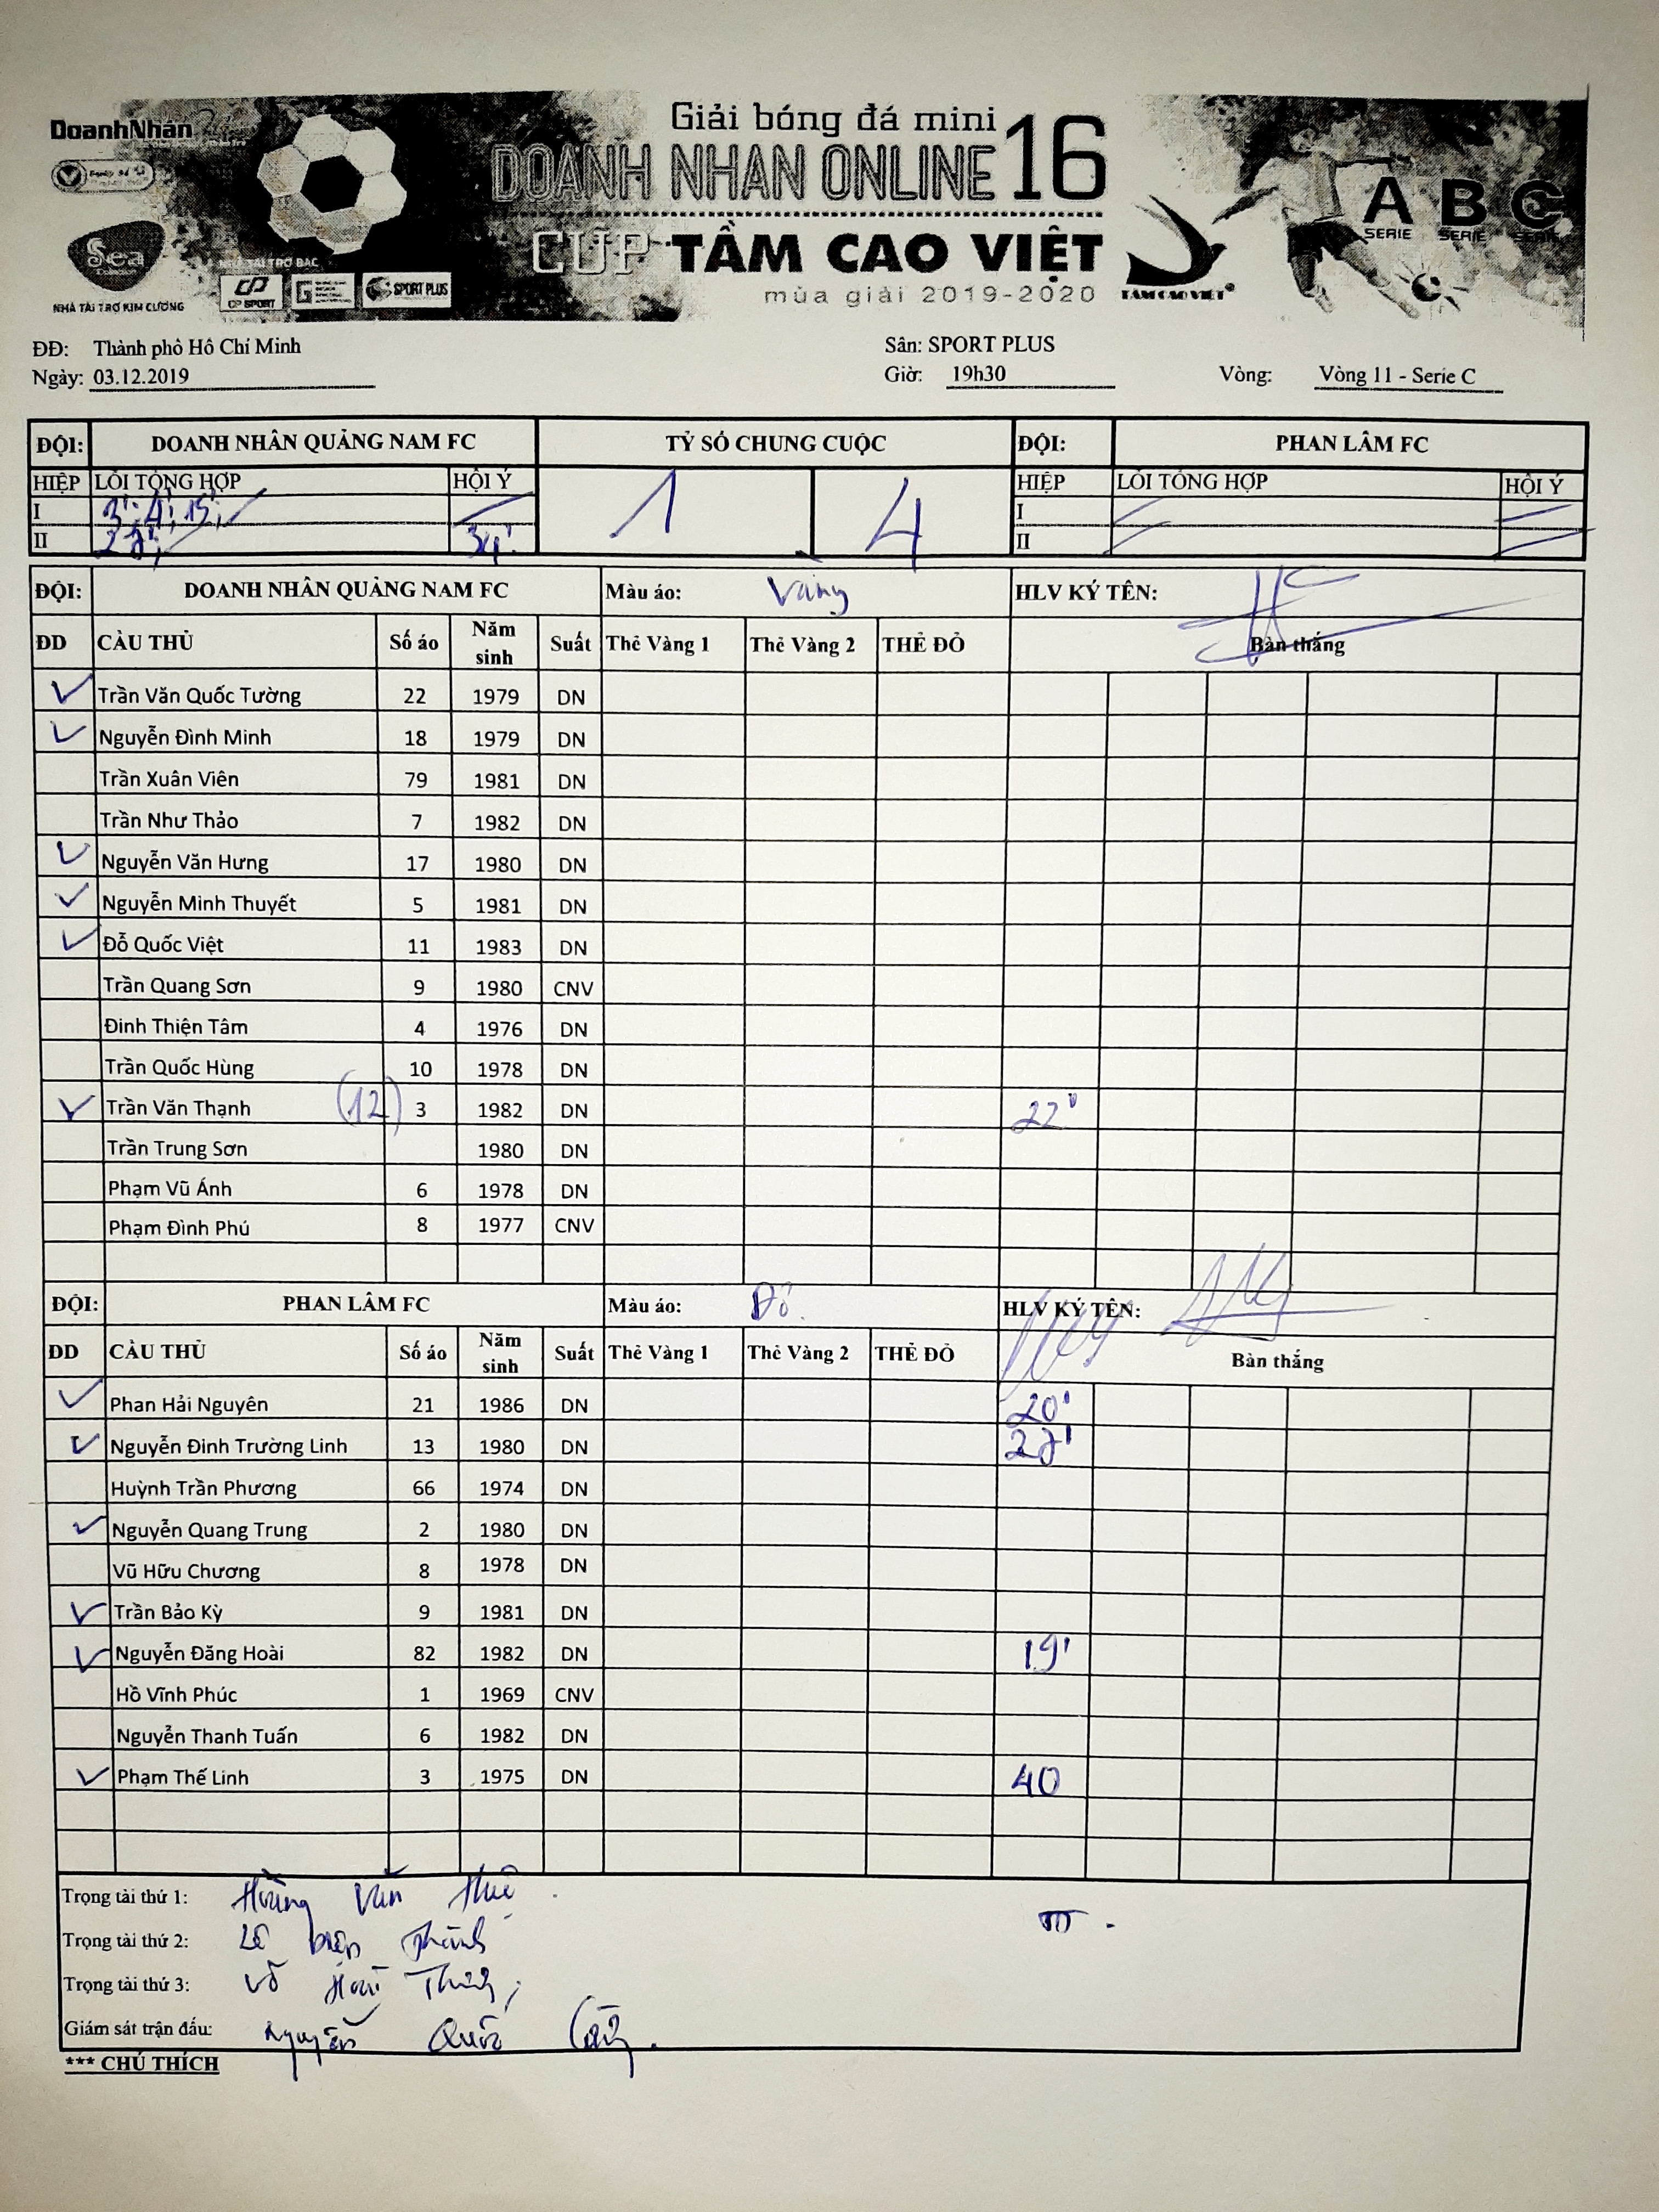 DoanhNhân
Giải bóng đá mini
DOANH NHAN ONLINE 16
CUP TẦM CAO VIỆT
mùa giải 2019-2020
Sea
NHÀ TÀI TRỢ KIM CƯƠNG
NHÀ TÀI TRỢ BẠC
CP SPORT
SPORT PLUS
TẦM CAO VIỆT
A SERIE B SERIE C SERIE
ĐĐ: Thành phố Hồ Chí Minh Sân: SPORT PLUS
Ngày: 03.12.2019 Giờ: 19h30 Vòng: Vòng 11 - Serie C
ĐỘI: DOANH NHÂN QUẢNG NAM FC TỶ SỐ CHUNG CUỘC ĐỘI: PHAN LÂM FC
HIỆP LỖI TỔNG HỢP HỘI Ý 1 4 HIỆP LỖI TỔNG HỢP HỘI Ý
I 3'; 4'; 15'; I
II 27'; 34' II
ĐỘI: DOANH NHÂN QUẢNG NAM FC Màu áo: Vàng HLV KÝ TÊN:
ĐD CẦU THỦ Số áo Năm sinh Suất Thẻ Vàng 1 Thẻ Vàng 2 THẺ ĐỎ Bàn thắng
Trần Văn Quốc Tường 22 1979 DN
Nguyễn Đình Minh 18 1979 DN
Trần Xuân Viên 79 1981 DN
Trần Như Thảo 7 1982 DN
Nguyễn Văn Hưng 17 1980 DN
Nguyễn Minh Thuyết 5 1981 DN
Đỗ Quốc Việt 11 1983 DN
Trần Quang Sơn 9 1980 CNV
Đinh Thiện Tâm 4 1976 DN
Trần Quốc Hùng 10 1978 DN
Trần Văn Thạnh (12) 3 1982 DN 22'
Trần Trung Sơn 1980 DN
Phạm Vũ Ánh 6 1978 DN
Phạm Đình Phú 8 1977 CNV
ĐỘI: PHAN LÂM FC Màu áo: Đỏ HLV KÝ TÊN:
ĐD CẦU THỦ Số áo Năm sinh Suất Thẻ Vàng 1 Thẻ Vàng 2 THẺ ĐỎ Bàn thắng
Phan Hải Nguyên 21 1986 DN 20'
Nguyễn Đinh Trường Linh 13 1980 DN 27'
Huỳnh Trần Phương 66 1974 DN
Nguyễn Quang Trung 2 1980 DN
Vũ Hữu Chương 8 1978 DN
Trần Bảo Kỳ 9 1981 DN
Nguyễn Đăng Hoài 82 1982 DN 19'
Hồ Vĩnh Phúc 1 1969 CNV
Nguyễn Thanh Tuấn 6 1982 DN
Phạm Thế Linh 3 1975 DN 40
Trọng tài thứ 1: Hoàng Văn
Trọng tài thứ 2: Lê
Trọng tài thứ 3: Võ
Giám sát trận đấu: Nguyễn Quốc
*** CHÚ THÍCH